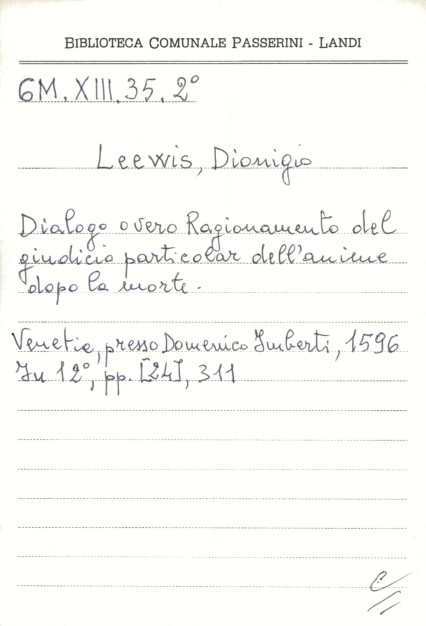 BIBLIOTECA COMUNALE PASSERINI - LANDI
6M. XIII. 35. 2°
Leewis, Dionigio
Dialogo overo Ragionamento del
giudicio particolar dell'anime
dopo la morte.
Venetia, presso Domenico Imberti, 1596
In 12°, pp. [24], 311
C